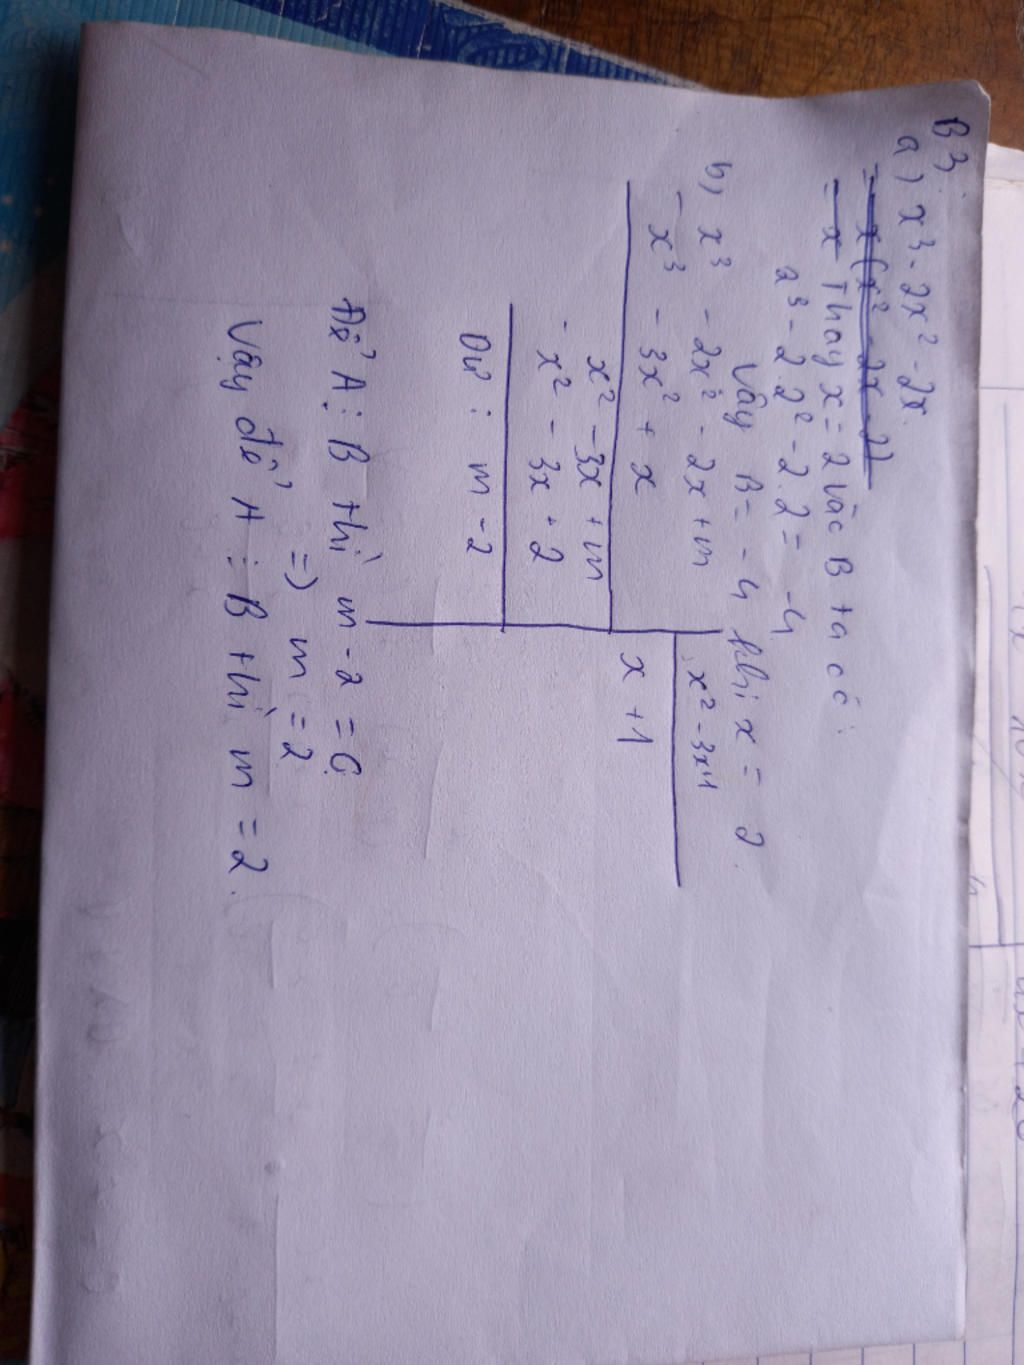 B3,
a) x³ - 2x² - 2x.
= x(x² - 2x - 2)
= x Thay x = 2 vào B ta có:
2³ - 2.2² - 2.2 = -4
Vậy B = -4 khi x = 2.
b) x³ - 2x² - 2x + m | x² - 3x+1
- x³ - 3x² + x | x + 1
x² - 3x + m
- x² - 3x + 2
Dư : m - 2
Để A ⋮ B thì m - 2 = 0
=> m = 2
Vậy để A ⋮ B thì m = 2.